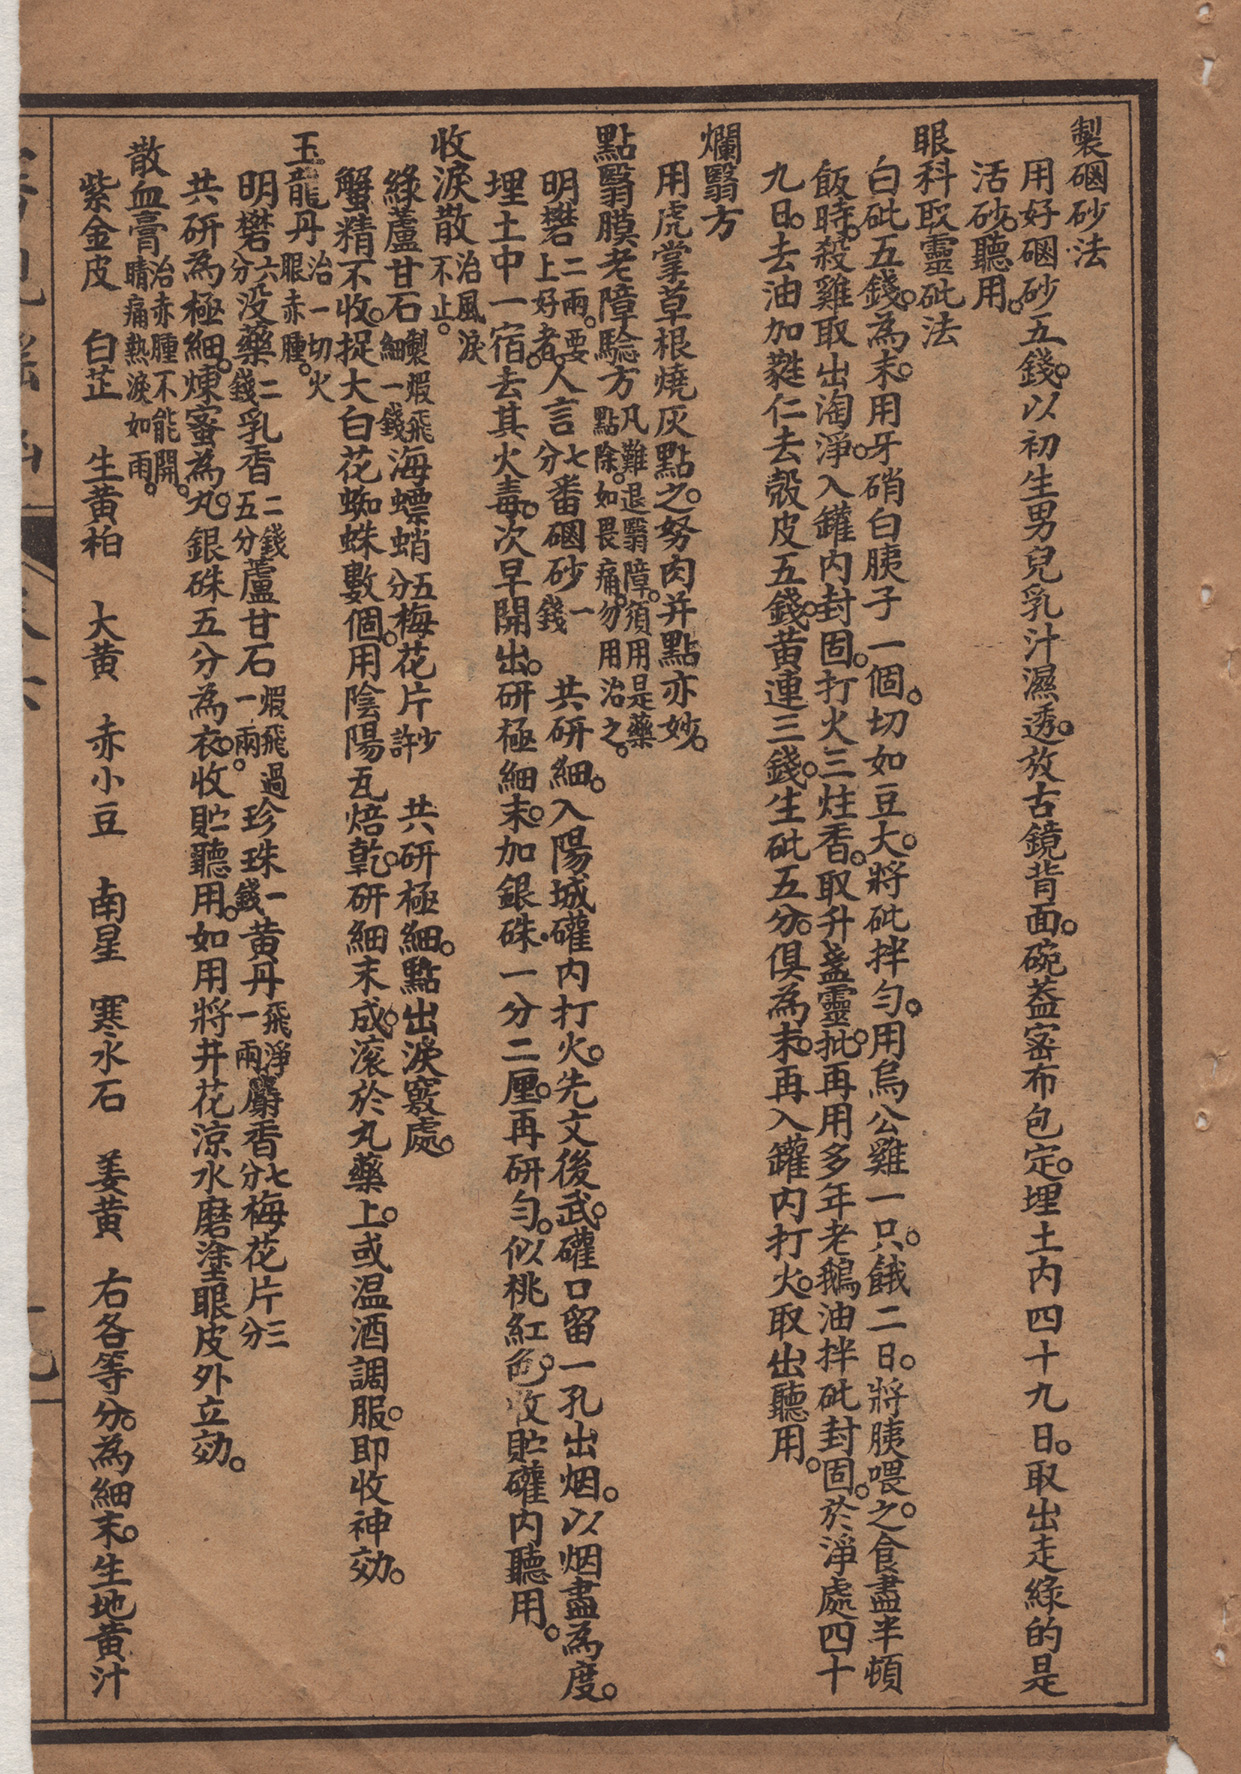 製硇砂法
用好硇砂五錢。以初生男兒乳汁濕透。放古鏡背面。碗蓋密布包定。埋土內四十九日。取出走綠的是
活砂。聽用。
眼科取靈砒法
白砒五錢。為末。用牙硝白胰子一個。切如豆大。將砒拌勻。用烏公雞一只。餓二日。將胰喂之。食盡半頓
飯時。殺雞取出淘淨。入罐內封固。打火三炷香。取升盞靈砒。再用多年老鵝油拌砒封固。於淨處四十
九日。去油加蕤仁去殼皮五錢。黃連三錢。生砒五分。俱為末。再入罐內打火。取出聽用。
爛翳方
用虎掌草根燒灰點之。努肉并點亦妙。
點翳膜老障驗方 凡難退翳障。須用是藥點除。如畏痛。勿用治之。
明礬二兩。要上好者。人言七分 番硇砂一錢 共研細。入陽城礶內打火。先文後武。礶口留一孔出烟。以烟盡為度。
埋土中一宿。去其火毒。次早開出。研極細末。加銀硃一分二厘。再研勻。似桃紅色。收貯礶內聽用。
收淚散 治風淚不止。
綠蘆甘石製煆飛細一錢 海螵蛸五分 梅花片少許 共研極細。點出淚竅處。
蟹精不收。捉大白花蜘蛛數個。用陰陽瓦焙乾。研細末成。滚於丸藥上。或温酒調服。即收神効。
玉龍丹 治一切火眼赤腫。
明礬六分 没藥二錢 乳香二錢五分 蘆甘石煆飛過一兩。珍珠一錢 黃丹飛淨一兩 麝香七分 梅花片三分
共研為極細。煉蜜為丸。銀硃五分為衣。收貯聽用。如用將井花涼水磨塗眼皮外立効。
散血膏 治赤腫不能開。睛痛熱淚如雨。
紫金皮 白芷 生黃柏 大黃 赤小豆 南星 寒水石 姜黃 右各等分。為細末。生地黃汁